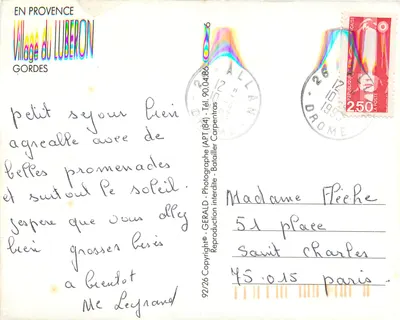 EN PROVENCE
Village du LUBERON
GORDES
petit sejour bien
agreable avec de
belles promenades
et surtout le soleil.
j'espere que vous allez
bien grosses bises
a bientot
Me Legrand
92/26 Copyright© - GERALD - Photographe
Reproduction interdite - Batailler Carpentras
26 ALLAN
26
DROME
2,50
Madame Flèche
51 place
Saint Charles
75.015 paris.